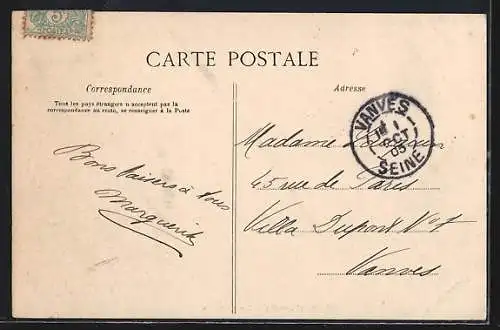 5
CARTE POSTALE
Correspondance
Tous les pays étrangers n'acceptent pas la
correspondance au recto, se renseigner à la Poste
Bons baisers à tous
Marguerite
Adresse
VANVES
1
OCT
05
SEINE
Madame
45 rue de Paris
Villa Dupont N° 7
Vanves